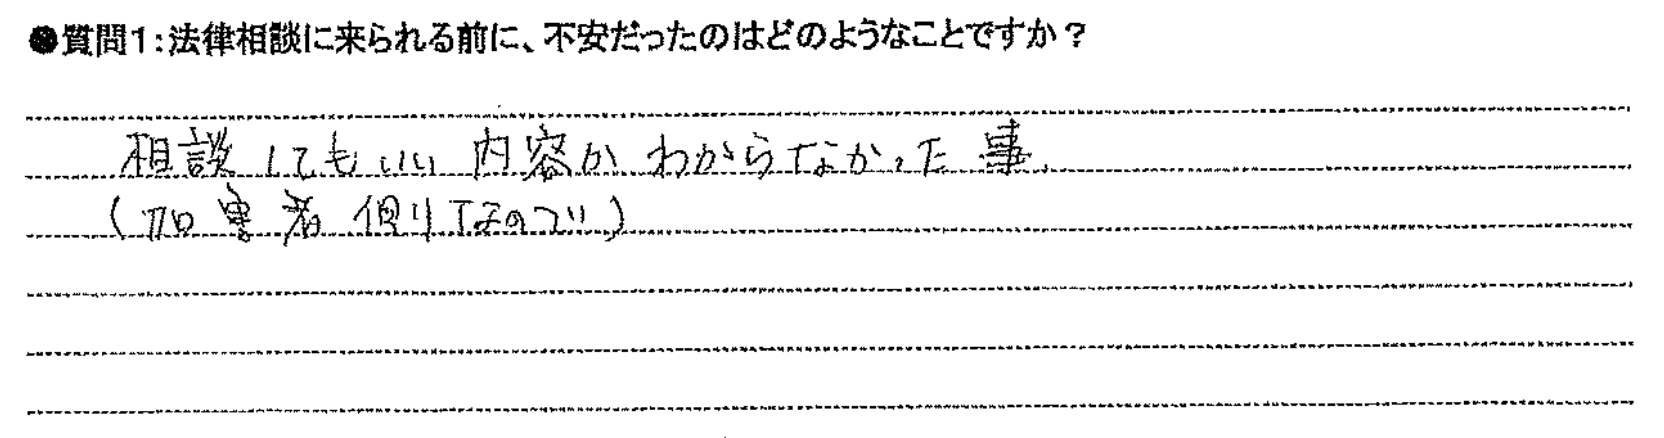 ●質問1:法律相談に来られる前に、不安だったのはどのようなことですか?
相談してもいい内容かわからなかった事。
(加害者側なので)